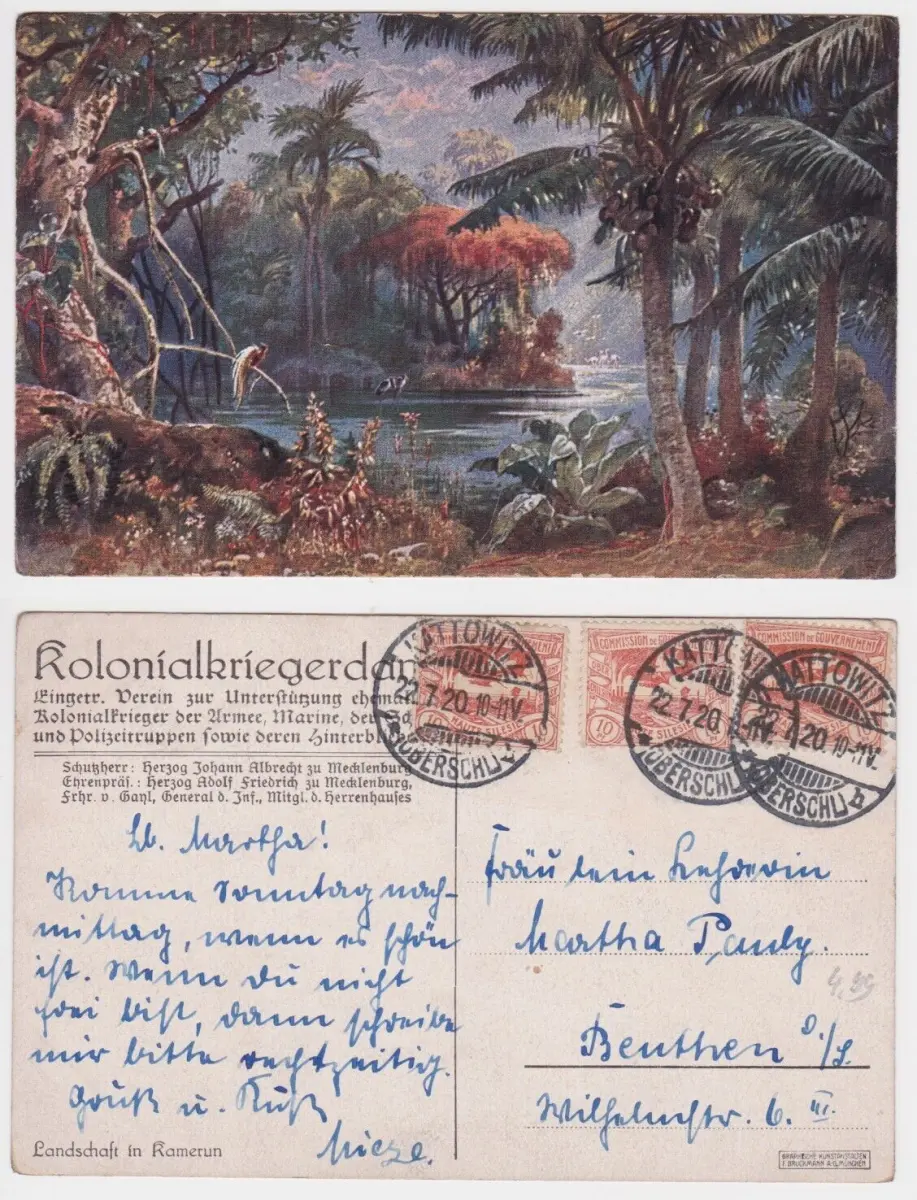 Kolonialkriegerdan
Eingetr. Verein zur Unterstützung ehemal
Kolonialkrieger der Armee, Marine, der
und Polizeitruppen sowie deren Hinterbl
Schutzherr: Herzog Johann Albrecht zu Mecklenburg
Ehrenpräs.: Herzog Adolf Friedrich zu Mecklenburg,
Frhr. v. Gayl, General d. Inf., Mitgl. d. Herrenhauses
KATTOWITZ
22.7.20.10-11V.
(OBERSCHL)
COMMISSION DE GOUVERNEMENT
10
KATTOWITZ
22.7.20.
(OBERSCHL)
COMMISSION DE GOUVERNEMENT
KATTOWITZ
22.7.20.10-11V.
(OBERSCHL)
Lb. Martha!
Komme Sonntag nach-
mittag, wenn es schön
ist. Wenn du nicht
frei bist, dann schreibe
mir bitte rechtzeitig.
Gruß u. Kuß
Mieze.
Fräulein Lehrerin
Martha Pauly.
Beuthen O./S.
Wilhelmstr. 6. III.
4,99
Landschaft in Kamerun
GRAPHISCHE KUNSTANSTALTEN
F. BRUCKMANN A.G. MÜNCHEN